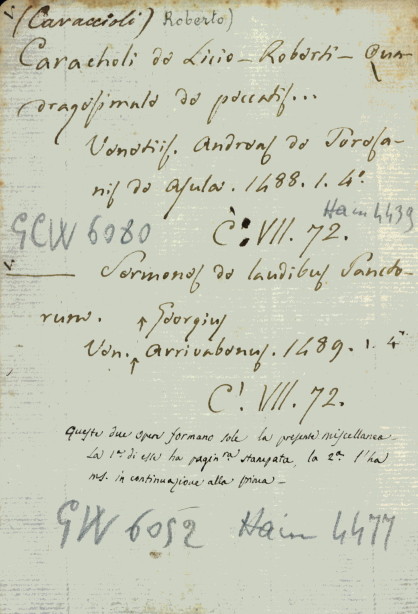 (Caraccioli) Roberto)
Caracholi de Licio - Roberti - Qua-
dragesimale de peccatis...
Venetiis. Andreas de Toresa-
nis de Asula. 1488. 1. 4°.
Hain 4439
GW 6080 C. VII. 72.
Sermones de laudibus Sancto-
rum. Georgius
Ven. Arrivabenus. 1489. 1. 4°
C. VII. 72.
Queste due opere formano sole la presente miscellanea.
La 1ma di esse ha pagin.ne stampata, la 2a l'ha
ms. in continuazione alla prima -
GW 6052 Hain 4477